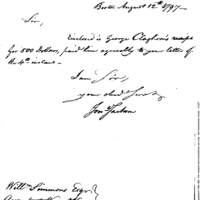 Boston August 12th 1797.
Sir,
Enclosed is George Claghorn's receipt
for 500 Dollars, paid him agreeably to your letter of
the 4th instant.
I am Sir,
your obed Servt
Jon Jackson
Willm Simmons Esqr